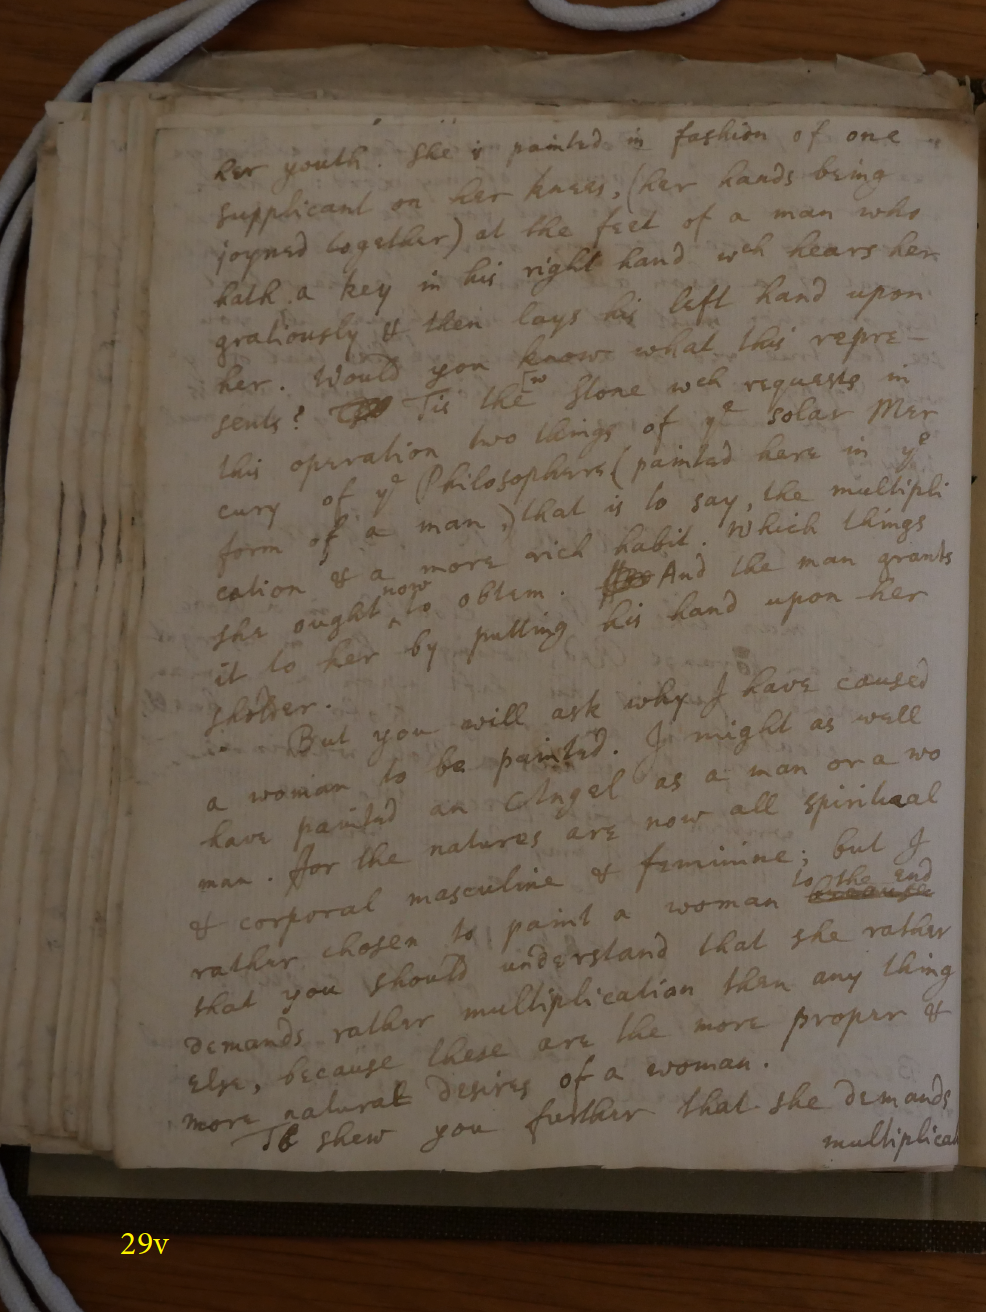 her youth. She is painted in fashion of one
supplicant on her knees, (her hands being
joyned together) at the feet of a man who
hath a key in his right hand wch hears her
gratiously & then lays his left hand upon
her. Would you know what this repre-
sents? Tis the Stone wch requests in
this operation two things of ye solar Mer
cury of ye Philosophers (painted here in ye
form of a man,) that is to say, the multipli
cation & a more rich habit. Which things
she ought now to obtein. And the man grants
it to her by putting his hand upon her
sholder.
But you will ask why I have caused
a woman to be painted. I might as well
have painted an Angel as a man or a wo
man. For the natures are now all spiritual
& corporal masculine & feminine; but I
rather chosen to paint a woman because to the end
that you should understand that she rather
demands rather multiplication then any thing
else, because these are the more proper &
more natural desires of a woman.
To shew you further that she demands
multiplicat
29v